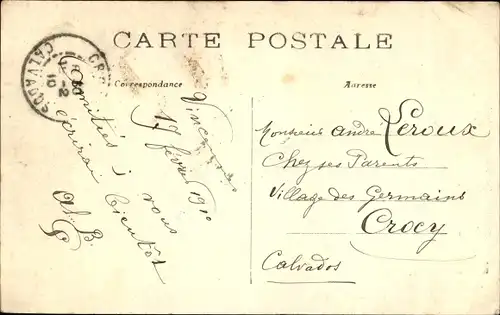 CARTE POSTALE
Correspondance
Adresse
CALVADOS
10
Vincennes
17 février 1910
amitiés à vous
écrirai bientôt
Al. B.
Monsieur André Leroux
Chez ses Parents
Village des Germains
Crocy
Calvados